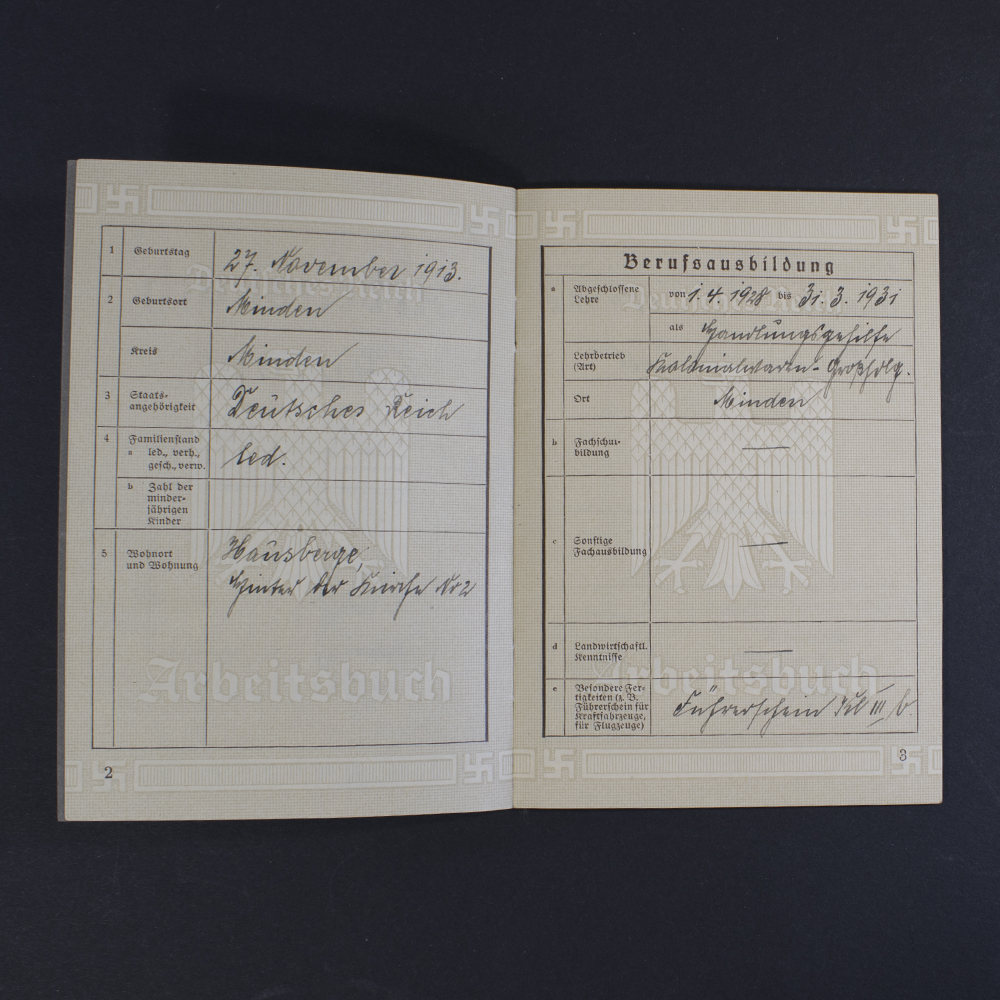 Deutsches Reich
1 Geburtstag 27. November 1913.
2 Geburtsort Minden
Kreis Minden
3 Staats-
angehörigkeit Deutsches Reich
4 Familienstand
a led., verh.,
gesch., verw. led.
b Zahl der
minder-
jährigen
Kinder
5 Wohnort
und Wohnung
Hausberge,
Hinter der Kirche No 2
Arbeitsbuch
2
Berufsausbildung
Deutsches Reich
a Abgeschlossene
Lehre
von 1. 4. 1928 bis 31. 3. 1931
als Handlungsgehilfe
Lehrbetrieb
(Art) Kolonialwaren-Großhdlg.
Ort Minden
b Fachschul-
bildung —
c Sonstige
Fachausbildung —
d Landwirtschaftl.
Kenntnisse —
Arbeitsbuch
e Besondere Fer-
tigkeiten (z. B.
Führerschein für
Kraftfahrzeuge,
für Flugzeuge)
Führerschein Kl III b.
3